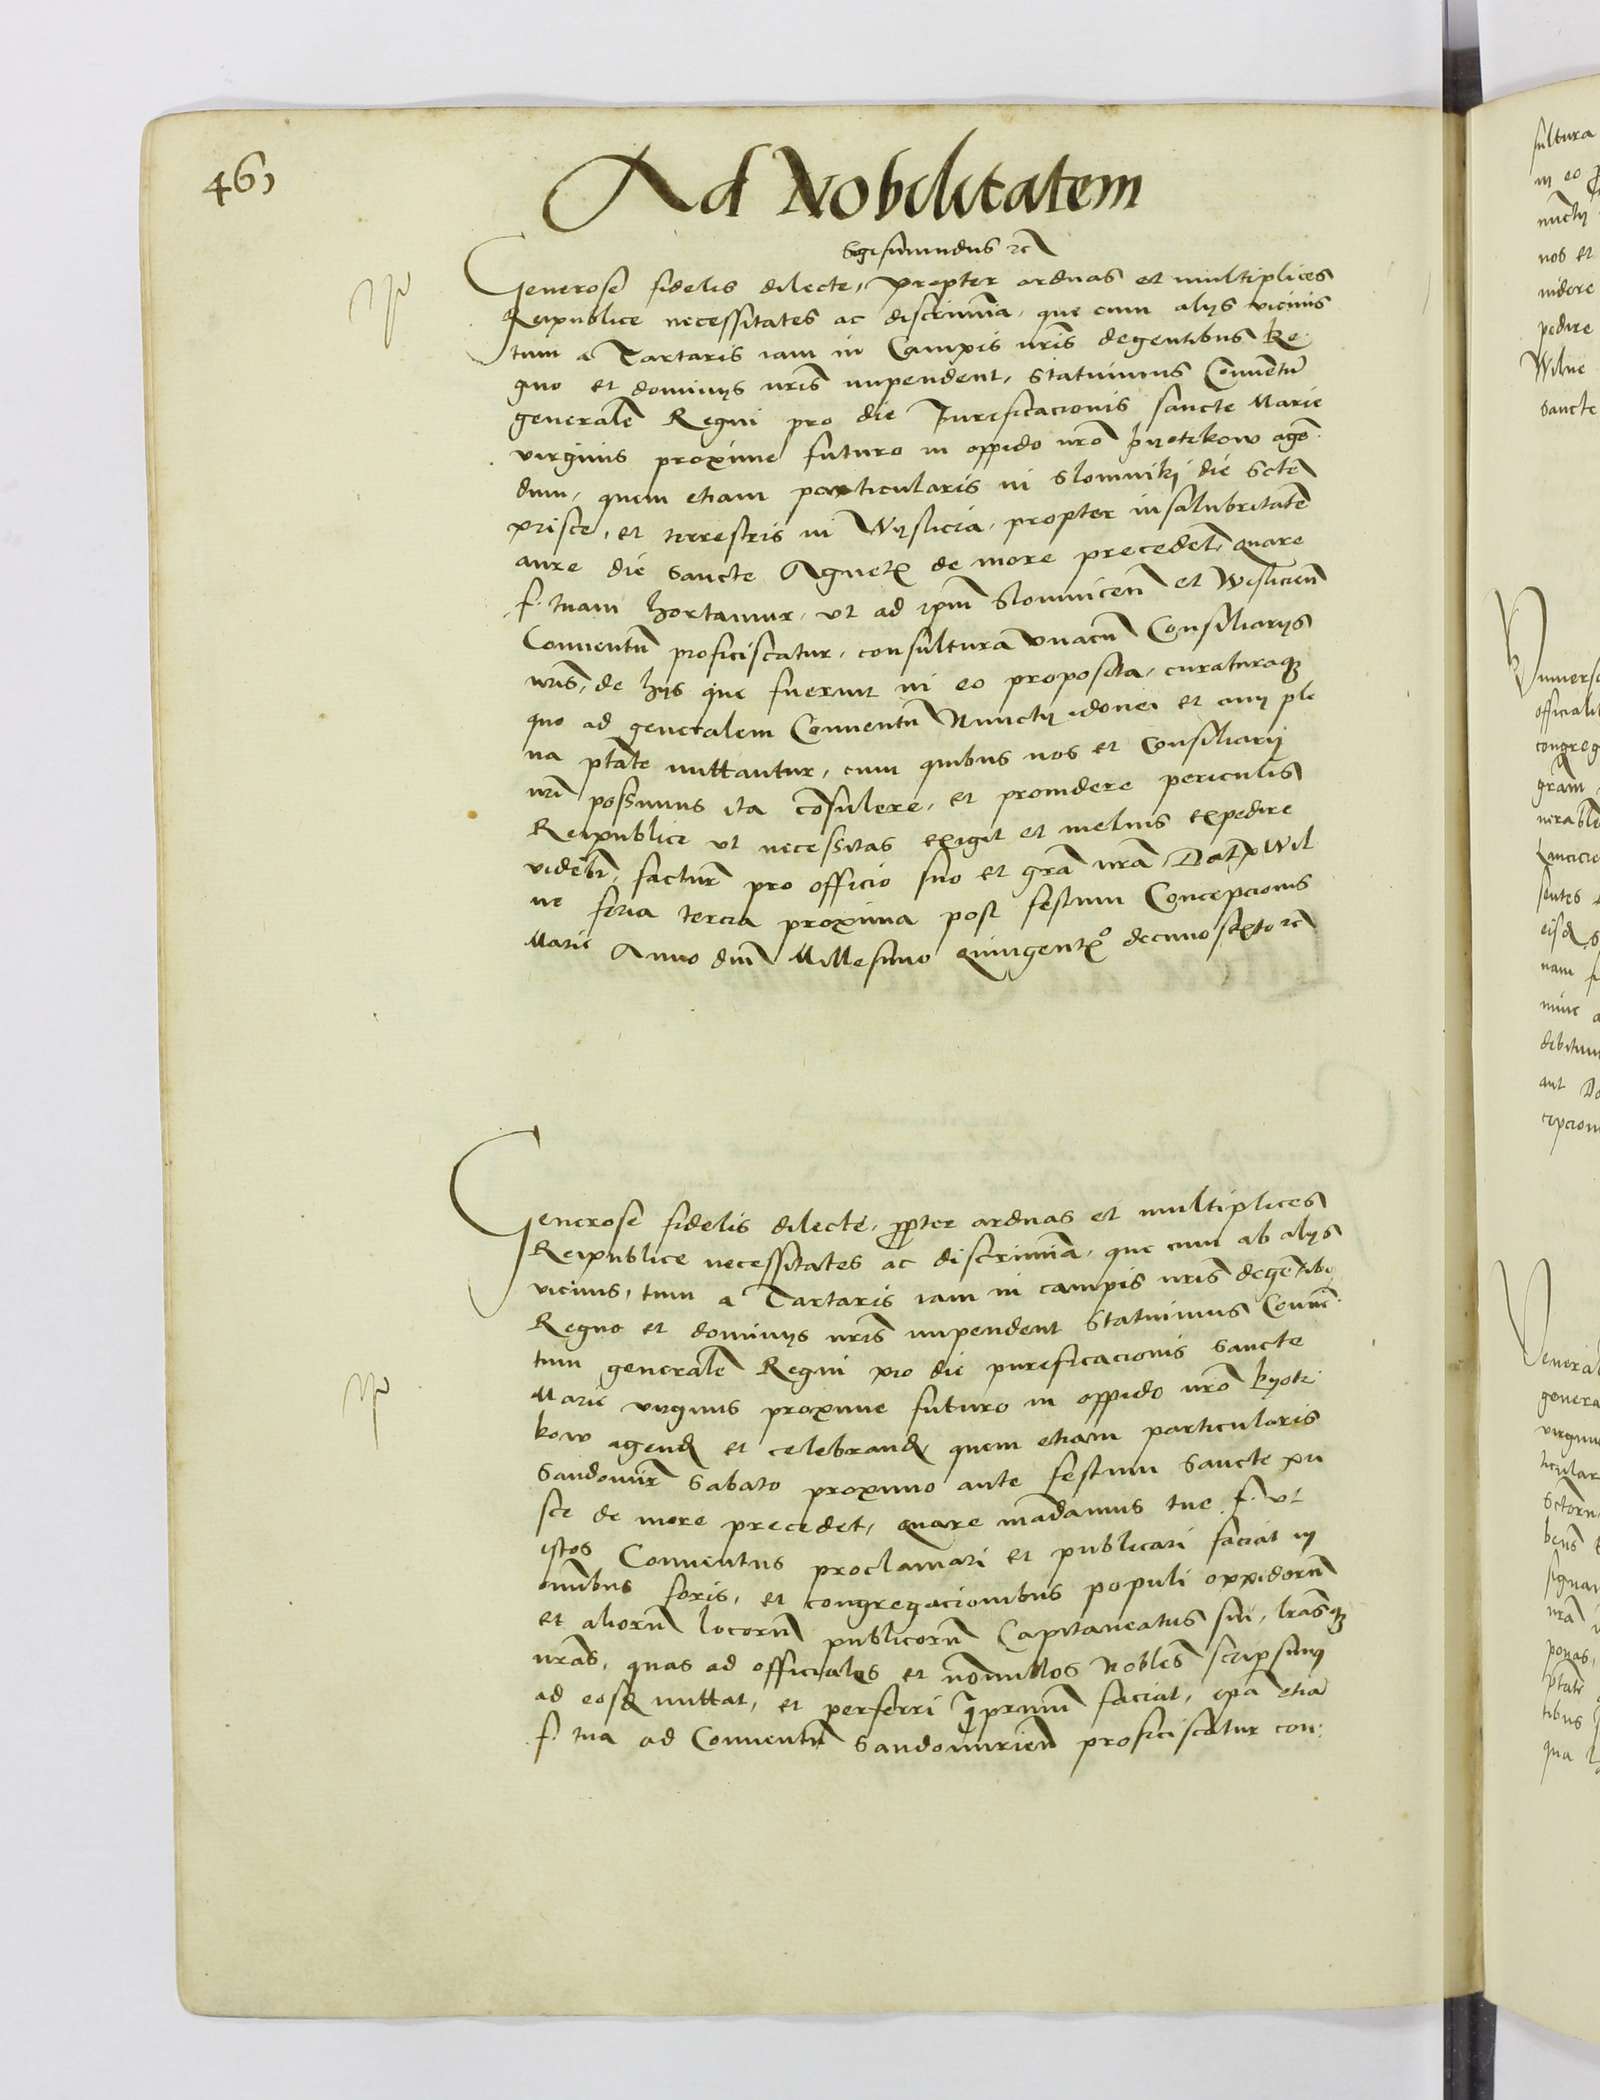 461
Ad Nobilitatem
Sigismundus rc̃
Generose fidelis dilecte, Propter arduas et multiplices
Reipublice necessitates ac discrimina, que cum alijs vicinis
tum a Tartaris iam in Campis nrĩs degentibus Re-
gno et dominijs nrĩs impendent, Statuimus Conuentũ
generalẽ Regni pro die Purificacionis sancte Marie
virginis proxime futuro in oppido nrõ pyotrkow agẽ-
dum, quem etiam particularis in Slomniki die Sctẽ
prisce, et terrestris in Wyslicia, propter insalubritatẽ
aure die Sancte Agnetꝭ de more precedet, Quare
f. tuam hortamur, vt ad ipm̃ Slomnicen̄ et Wislicien̄
Conuentũ proficiscatur, consultura vnacũ Consiliarijs
nrĩs, de hijs que fuerint in eo proposita, curaturaqꝫ
quo ad generalem Conuentũ Nunctij idonei et cum ple
na ptãte mittantur, cum quibus nos et Consiliarij
nrĩ possimus ita cõsulere, et prouidere periculis
Reipublice vt necessitas exigit et melius expedire
videbĩ, facturã pro officio suo et grã nrã, Datꝭ Wil
ne feria tercia proxima post festum Concepcionis
Marie Anno dñi Millesimo quingentꝭo decimo sexto rc̃
Generose fidelis dilecte, propter arduas et multiplices
Reipublice necessitates ac discrimina, que cum ab alijs
vicinis, tum a Tartaris iam in campis nrĩs degẽtibꝰ
Regno et dominijs nrĩs impendent Statuimus Conuẽ-
tum generalẽ Regni pro die purificacionis Sancte
Marie virginis proxime futuro in oppido nrõ Pyotr
kow agendꝭ et celebrandꝭ, quem etiam particularis
Sandomirẽ Sabato proximo ante festum Sancte pri
sce de more precedet, Quare mãdamus tue f. vt
istos Conuentus proclamari et publicari faciat in
omnibus foris, et congregacionibus populi oppidorũ
et aliorũ locorũ publicorũ Capitaneatus sui, lrãsqꝫ
nrãs, quas ad officiales et nõnullos Nobiles scripsimꝰ
ad eosdꝭ mittat, et perferri q̃primũ faciat, ipa etiã
f. tua ad Conuentũ Sandomirien̄ proficiscatur con-